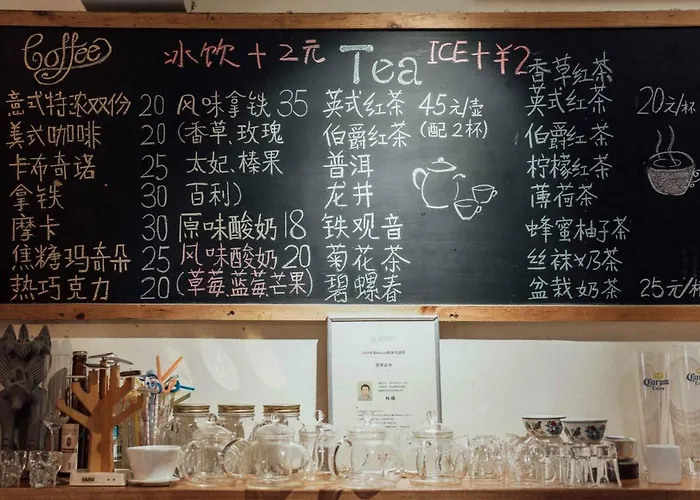 Coffee
冰饮+2元
意式特浓双份 20
美式咖啡 20
卡布奇诺 25
拿铁 30
摩卡 30
焦糖玛奇朵 25
热巧克力 20
风味拿铁 35
(香草、玫瑰
太妃、榛果
百利)
原味酸奶 18
风味酸奶 20
(草莓、蓝莓、芒果)
Tea
ICE+¥2
英式红茶 45元/壶
伯爵红茶 (配2杯)
普洱
龙井
铁观音
菊花茶
碧螺春
香草红茶
英式红茶 20元/杯
伯爵红茶
柠檬红茶
薄荷茶
蜂蜜柚子茶
丝袜奶茶
盆栽奶茶 25元/杯
Corona
Extra
Corona